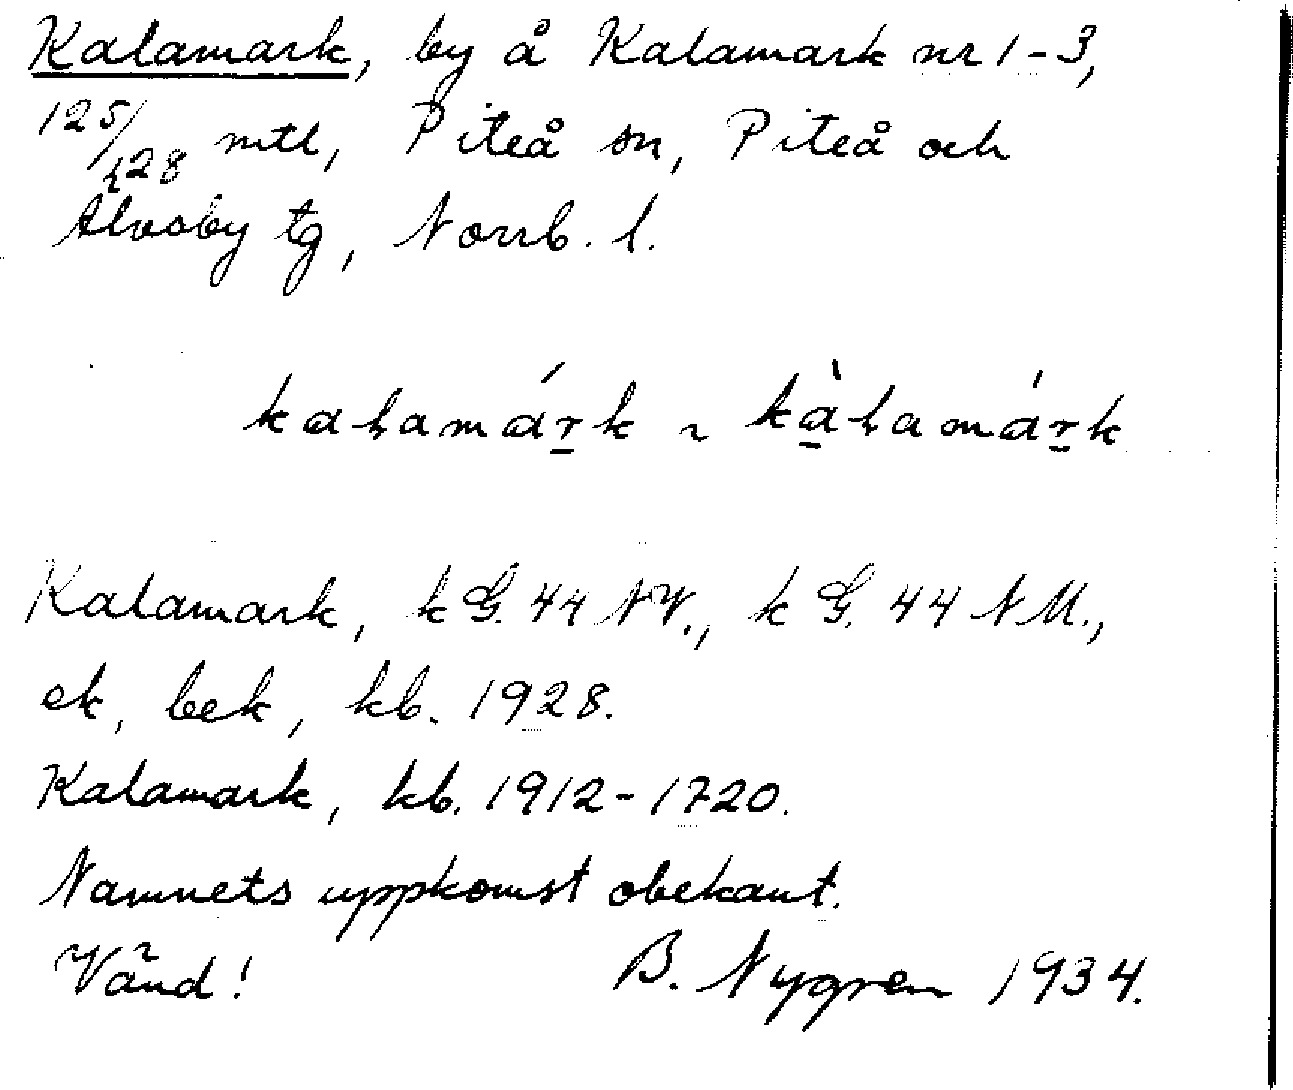 Kalamark, by å Kalamark nr 1-3,
125/128 mtl, Piteå sn, Piteå och
Älvsby tg, Norrb. l.
kaḷamárk ~ kàḷamárk
Kalamark, k G. 44 NV., k G. 44 NM.,
ek, bek, kb. 1928.
Kalamark, kb. 1912-1720.
Namnets uppkomst obekant.
Vänd! B. Nygren 1934.